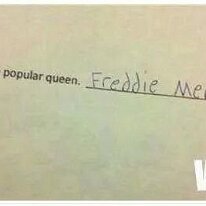 popular queen. Freddie Me